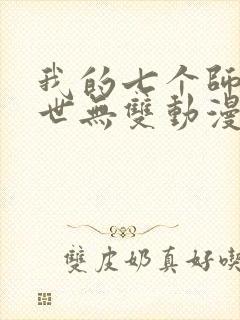 我的七个師
世無雙動漫
雙皮奶真好喫